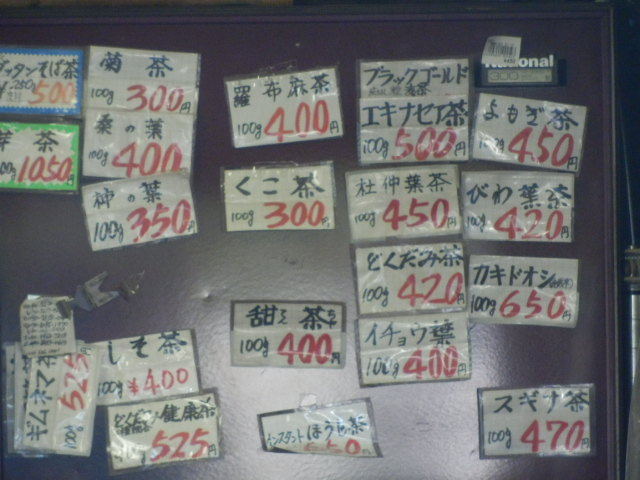 ダッタンそば茶
500
菊茶
100g 300円
桑の葉
100g 400円
芽茶
100g 1050円
柿の葉
100g 350円
羅布麻茶
100g 400円
くこ茶
100g 300円
ブラックゴールド
エキナセア茶
100g 500円
National
300
よもぎ茶
100g 450円
杜仲葉茶
100g 450円
びわ葉茶
100g 420円
どくだみ茶
100g 420円
カキドオシ
100g 650円
甜茶
100g 400円
イチョウ葉
100g 400円
ギムネマ
100g 525円
しそ茶
100g ¥400
健康茶
525円
インスタントほうじ茶
円
スギナ茶
100g 470円